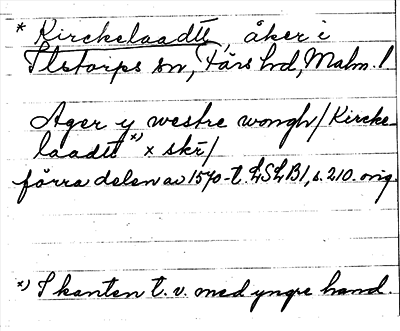 * Kirckelaadtt, åker i
Ilstorps sn, Färs hd, Malm. l
Ager y westre wongh/Kircke-
laadtt x) x skr/
förra delen av 1570-t. LSLB1, s. 210. orig.
x) I kanten t. v. med yngre hand.